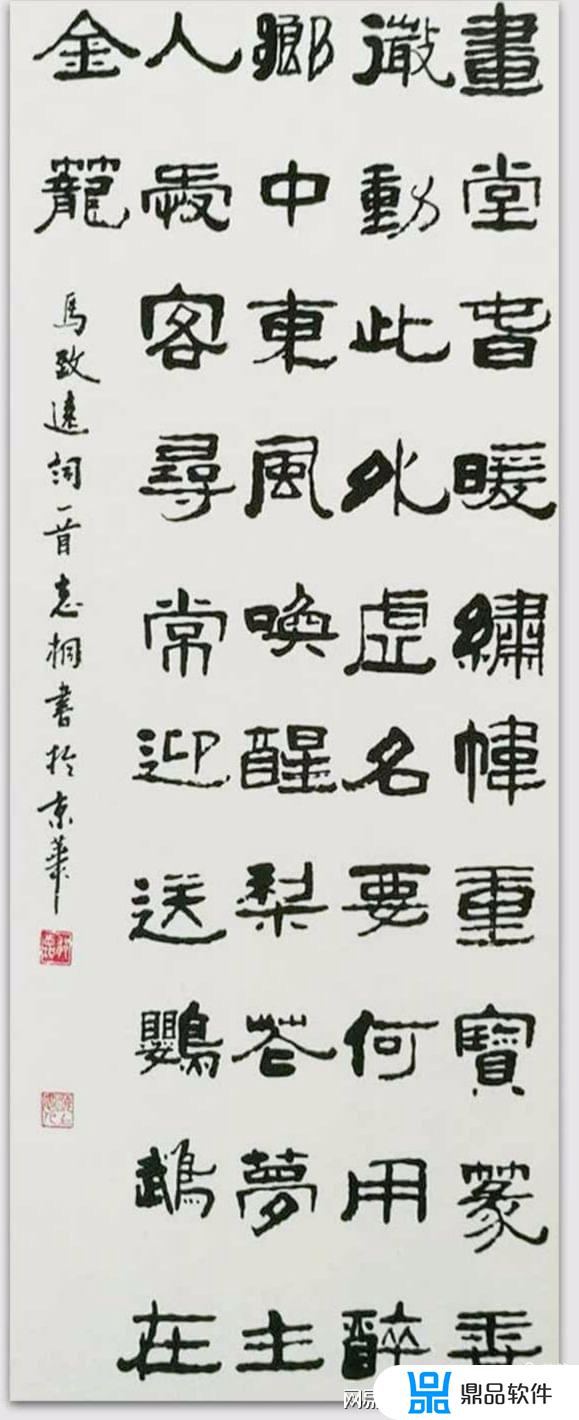 畫堂旾暖繡幃重寶篆香
微動此外虛名要何用醉
鄉中東風喚醒梨花夢主
人愛客尋常迎送鸚鵡在
金籠
馬致遠詞一首志桐書於京華
鼎品软件